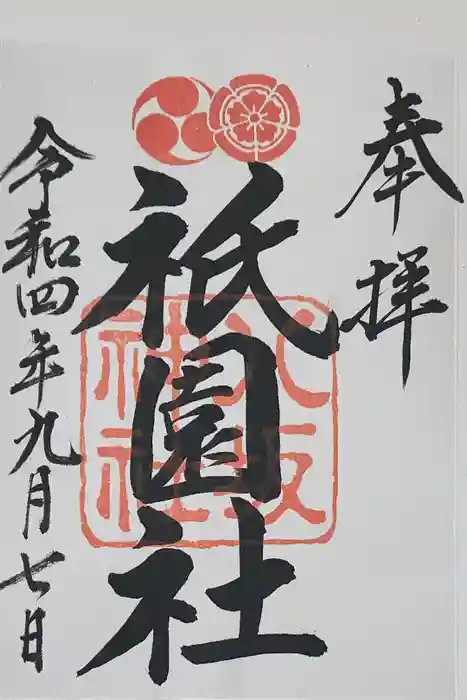 奉拝
祇園社
八坂
神社
令和四年九月七日